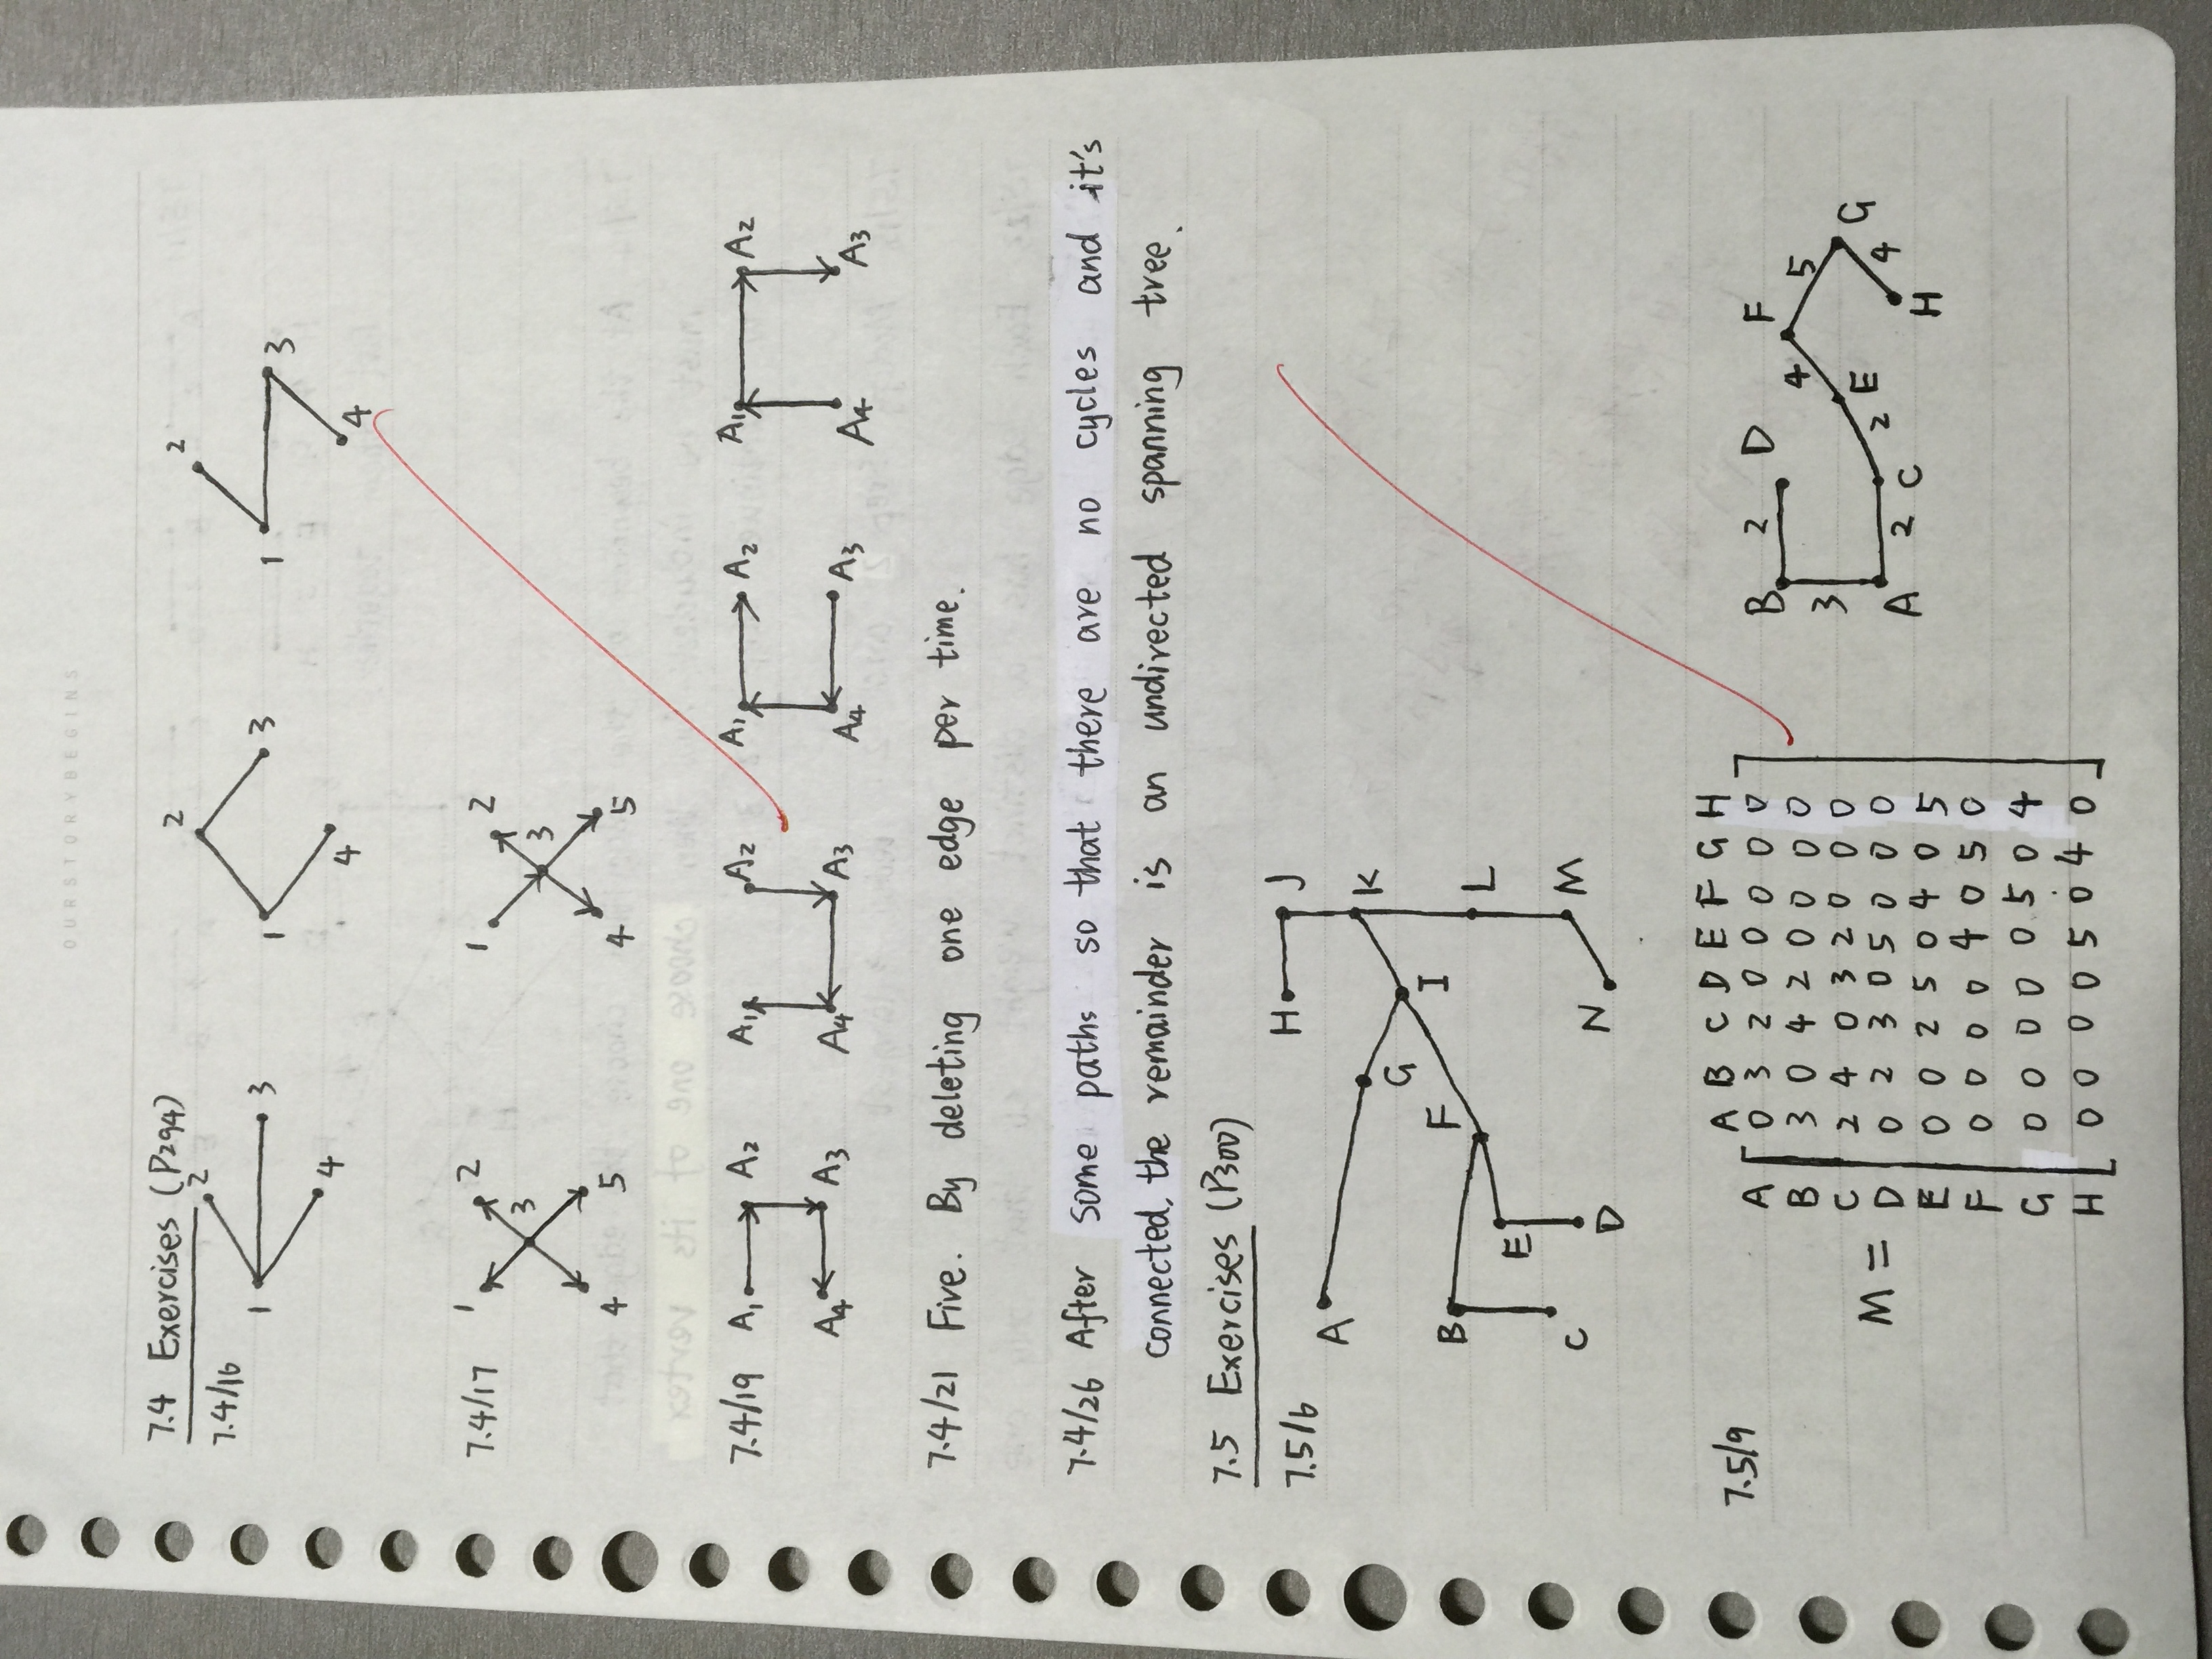 OURSTORYBEGINS
7.4 Exercises (P294)
7.4/16
1 2 3 4
1 2 3 4
1 2 3 4
7.4/17
1 2 3 4 5
1 2 3 4 5
7.4/19 A1 A2 A1 A2 A1 A2 A1 A2
A4 A3 A4 A3 A4 A3 A4 A3
7.4/21 Five. By deleting one edge per time.
7.4/26 After some paths so that there are no cycles and it's
connected, the remainder is an undirected spanning tree.
7.5 Exercises (P300)
7.5/6
H J
A
K
G
I
B F
L
E
C
M
N
D
7.5/9
A B C D E F G H
A 0 3 2 0 0 0 0 0
B 3 0 4 2 0 0 0 0
C 2 4 0 3 2 0 0 0
M = D 0 2 3 0 5 0 0 0
E 0 0 2 5 0 4 0 5
F 0 0 0 0 4 0 5 0
G 0 0 0 0 0 5 0 4
H 0 0 0 0 5 0 4 0
B 2 D F
4 5
3
E G
A 2 C 2 4
H